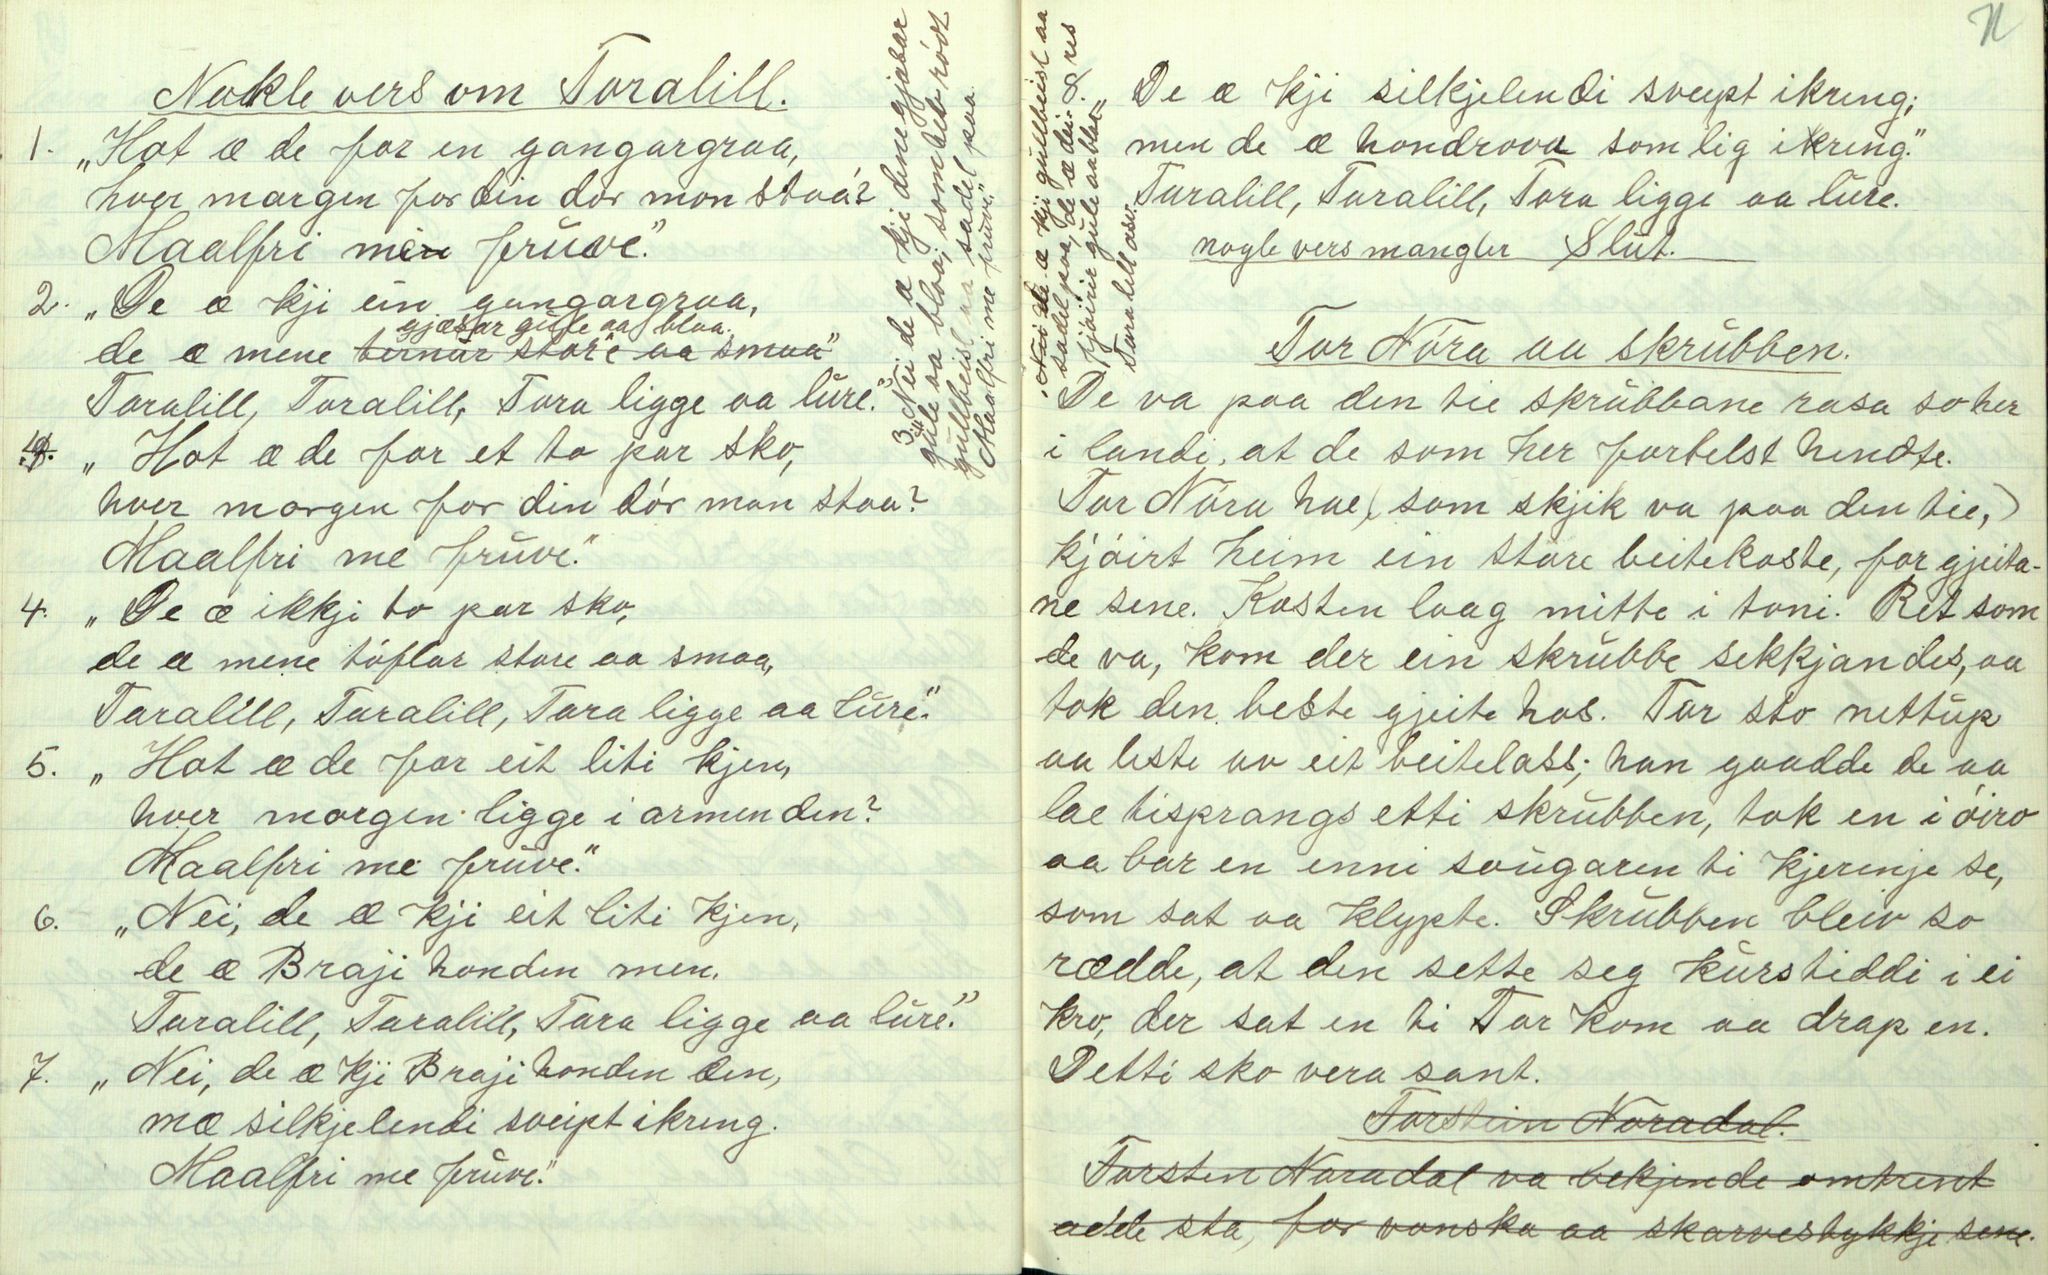 Nokle vers om Toralill.
1. „Hot æ de for en gangargraa,
hver margen for din dør mon staa?
Maalfri mei fruve."
2. „De æ kji ein gangargraa,
gjæsar gule aa blaa.
de æ mene ternur store aa smaa"
Toralill, Toralill, Tora ligge aa lure."
3. „Nei de æ kji dine gjæsar
gule aa blaa; som det rødt
gullbeisl aa sadel paa.
Maalfri me fruve."
„Nei de æ kji gullbeisl aa
sadel paa, de æ dei
kjøirir gule aabba"
Toralill asv.
4. „Hot æ de for et to par sko,
hver morgen for din dør mon staa?
Maalfri me fruve."
4. „De æ ikkji to par sko,
de æ mene tøflar store aa smaa,
Toralill, Toralill, Tora ligge aa lure."
5. „Hot æ de for eit liti kjen,
hver morgen ligge i armen den?
Maalfri me fruve."
6. „Nei, de æ kji eit liti kjen,
de æ Braji honden men.
Toralill, Toralill, Tora ligge aa lure."
7. „Nei, de æ kji Braji honden den,
mæ silkjelendi sveipt ikring.
Maalfri me fruve."
11
8. „De æ kji silkjelendi sveipt ikring;
men de æ hondrova som lig ikring."
Toralill, Toralill, Tora ligge aa lure.
nogle vers mangler Slut.
Tor Nøra aa skrubben.
De va paa den tie skrubbane rasa so her
i landi, at de som her fortelst hendte.
Tor Nøra hae (som skjik va paa den tie,)
kjøirt heim ein store beitekaste, for gjeita-
ne sene. Kasten laag mitte i toni. Ret som
de va, kom der ein skrubbe sekkjandes, aa
tok den beste gjeite hos. Tor sto nettup
aa leste av eit beitelass; han gaadde de aa
lae tisprangs etti skrubben, tok en i øiro
aa bar en enni sougaren ti kjeringe se,
som sat aa klypte. Skrubben bleiv so
rædde, at den sette seg kurstiddi i ei
kro, der sat en ti Tor kom aa drap en.
Detti sko vera sant.
Torstein Noradal.
Torsten Noradal va bekjende omtrent
adde sta, for vonska aa skarvestykkji sene.